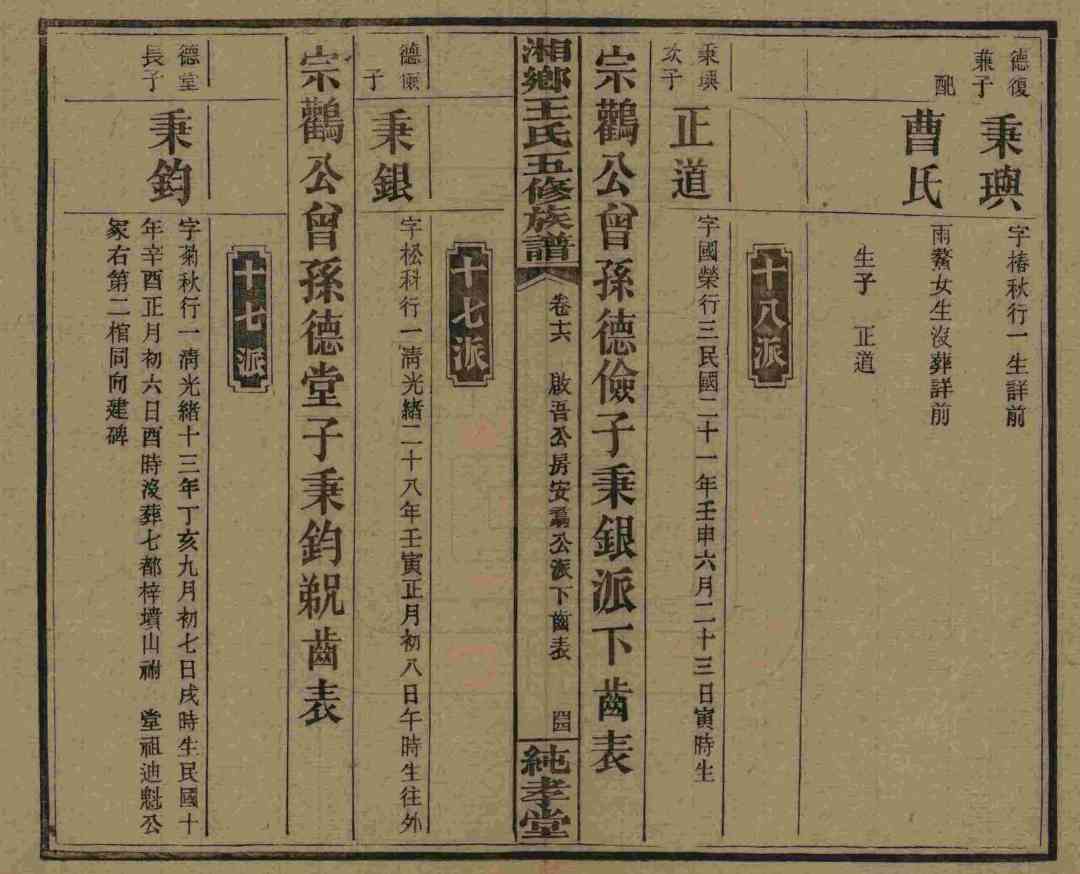 德復
兼子
秉璵
字椿秋行一生詳前
配
曹氏
雨鰲女生沒葬詳前
生子　正道
十八派
秉璵
次子
正道
字國榮行三民國二十一年壬申六月二十三日寅時生
宗鸛公曾孫德儉子秉銀派下齒表
湘鄉王氏五修族譜
卷十六　啟吾公房安公派下齒表　四
純孝堂
十七派
德
子
秉銀
字松科行一清光緒二十八年壬寅正月初八日午時生往外
宗鸛公曾孫德堂子秉鈞派齒表
十七派
德堂
長子
秉鈞
字菊秋行一清光緒十三年丁亥九月初七日戌時生民國十
年辛酉正月初六日酉時沒葬七都梓墳山祔　堂祖迪魁公
冢右第二棺同向建碑